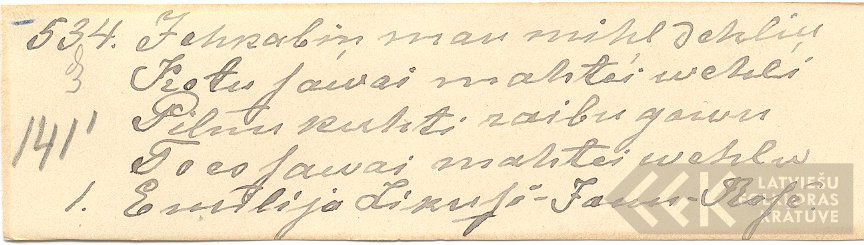 534. Jehkabiņ man mihl dehliņ
83 Ko tu sawai mahtei wehli
141¹ Pilnu kuhti raibu gowu
To es sawai mahtei wehlu
1. Emilija - Jaun-Rose
LATVIEŠU
FOLKLORAS
KRATUVE